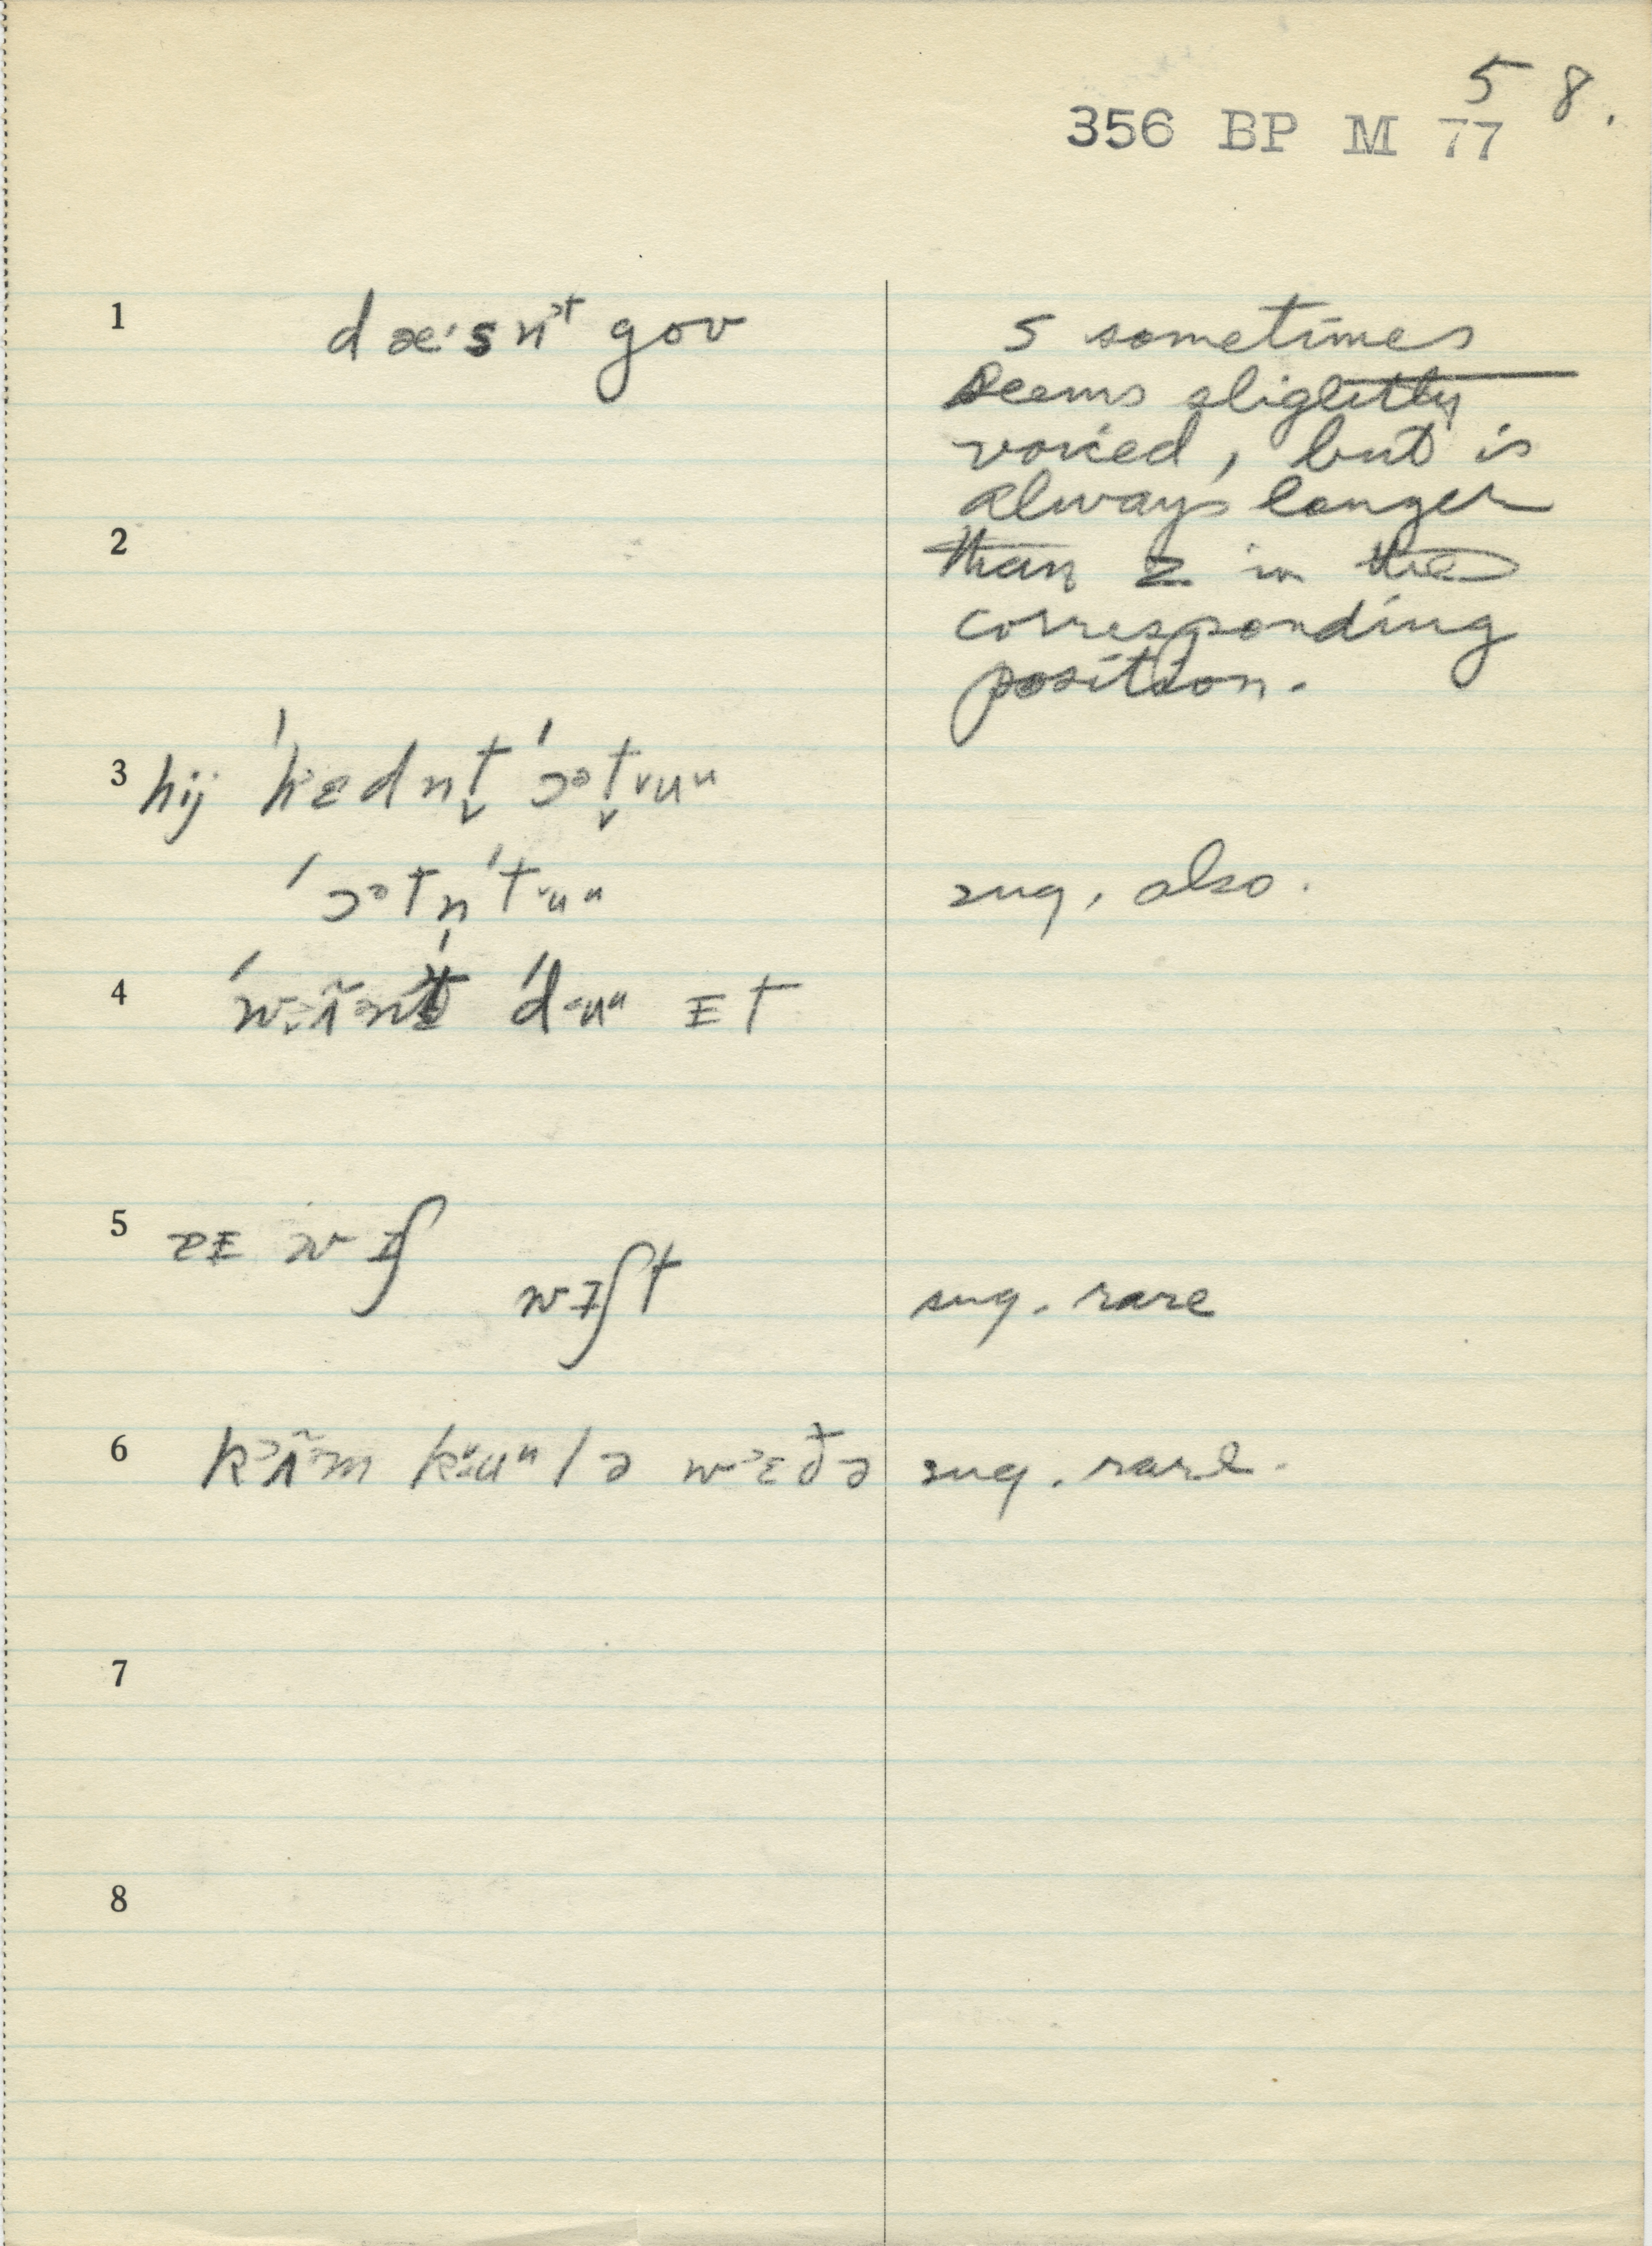 5 8.
356 BP M 77
1 dæ·sn̍ᵊt gov s sometimes
seems slightly
voiced, but is
always longer
2 than z in the
corresponding
position.
3 hij ˈhɛdnt̬ ˈɔᵊt̬ᵛuᵘ
ˈɔᵊtn̩ˈtᵛuᵘ sug. also.
4 dɨuᵘ ɪt
5 wɪʃ
wɪʃt sug. rare
6 sug. rare.
7
8